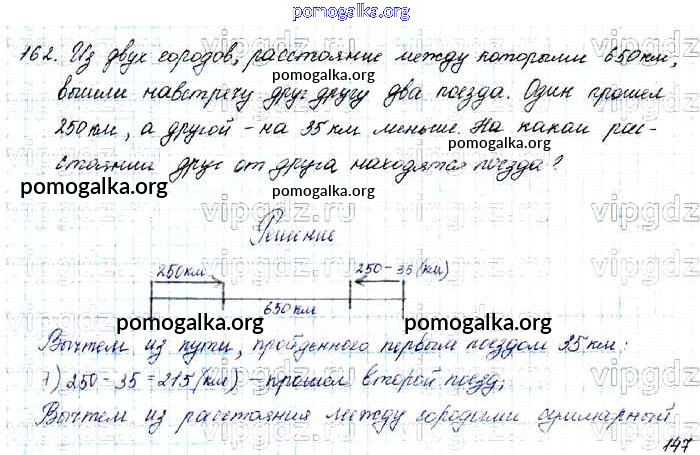 pomogalka.org
162. Из двух городов, расстояние между которыми 650 км,
pomogalka.org
вышли навстречу друг другу два поезда. Один прошел
250 км, а другой - на 35 км меньше. На каком рас-
pomogalka.org pomogalka.org
стоянии друг от друга находятся поезда?
pomogalka.org pomogalka.org
vipgdz.ru vipgdz.ru vipgdz
Решение
250 км 250 - 35 (км)
650 км
pomogalka.org pomogalka.org
Вычтем из пути, пройденного первым поездом 35 км:
1) 250 - 35 = 215 (км) - прошел второй поезд;
Вычтем из расстояния между городами суммарный
147